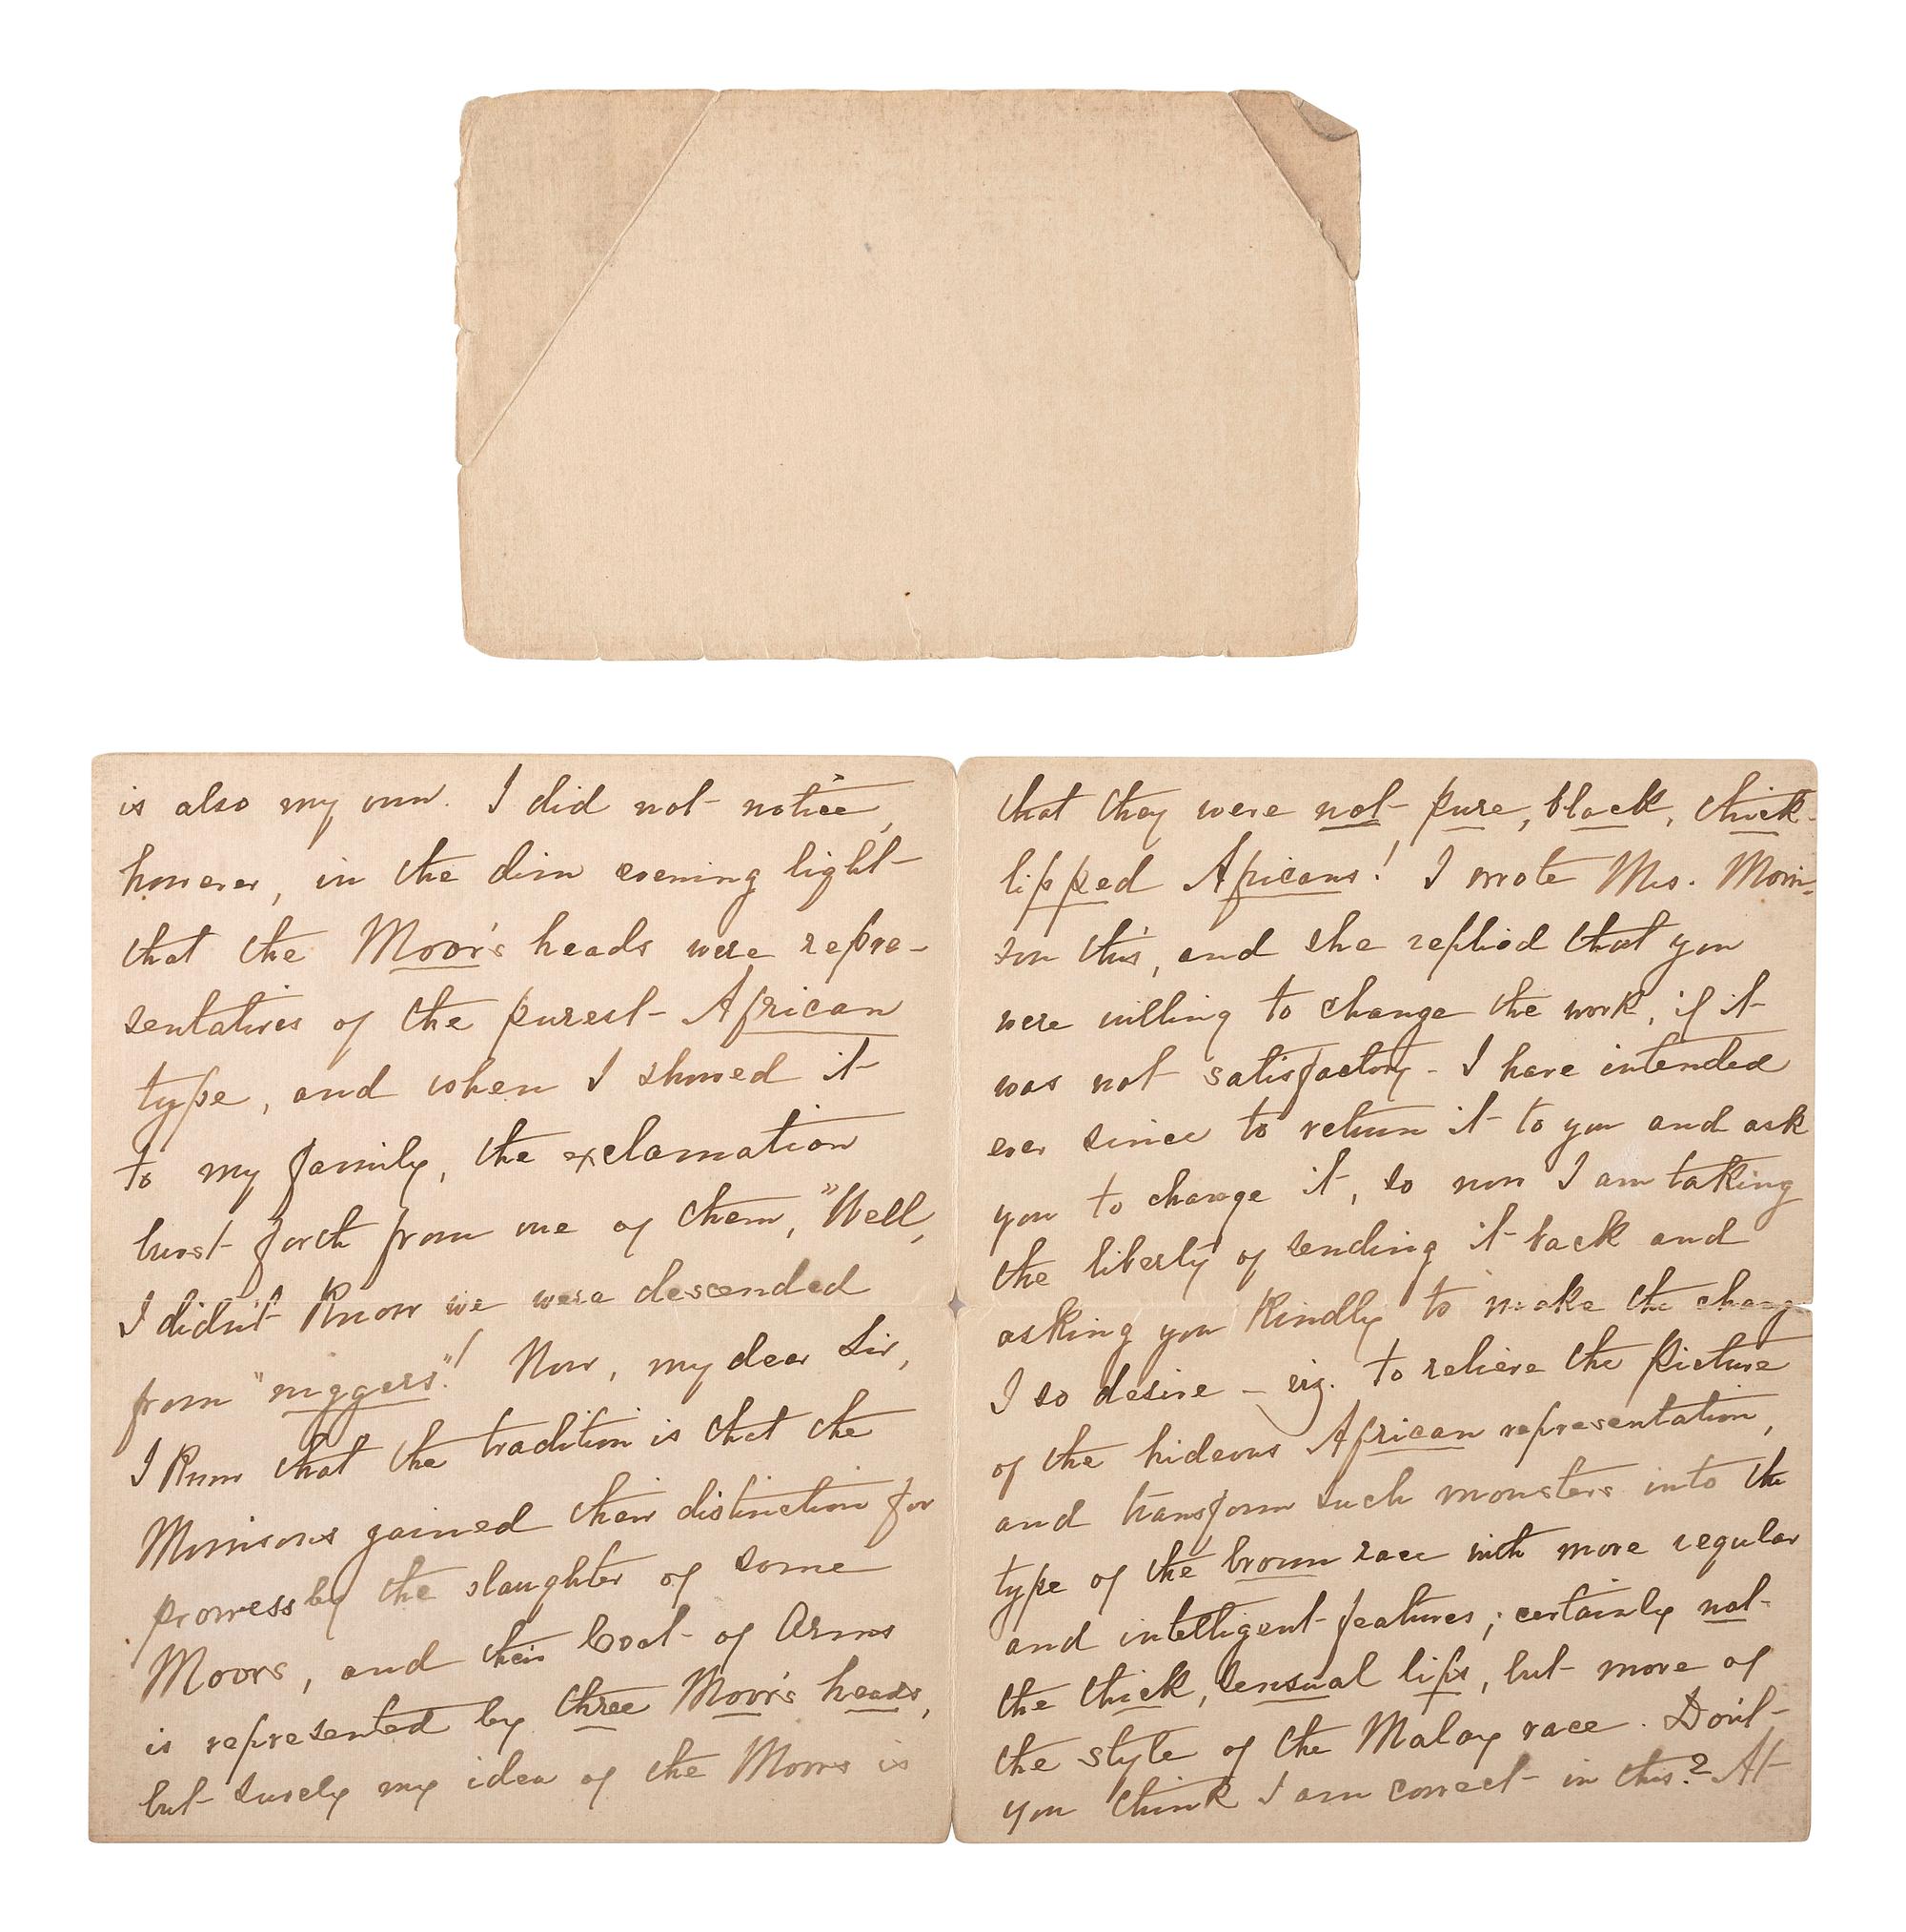 is also my own. I did not notice,
however, in the dim evening light
that the Moor's heads were repre-
sentatives of the purest African
type, and when I showed it
to my family, the exclamation
burst forth from one of them, "Well,
I didn't know we were descended
from "niggers"! Now, my dear Sir,
I know that the tradition is that the
Morrisons gained their distinction for
prowess by the slaughter of some
Moors, and their Coat of Arms
is represented by three Moor's heads,
but surely my idea of the Moors is
that they were not pure, black, thick-
lipped Africans! I wrote Mrs. Morri-
son this, and she replied that you
were willing to change the work, if it
was not satisfactory - I have intended
ever since to return it to you and ask
you to change it, so now I am taking
the liberty of sending it back and
asking you kindly to make the change
I so desire - viz. to relieve the picture
of the hideous African representation,
and transform such monsters into the
type of the brown race with more regular
and intelligent features; certainly not
the thick, sensual lips, but more of
the style of the Malay race. Don't
you think I am correct in this? At